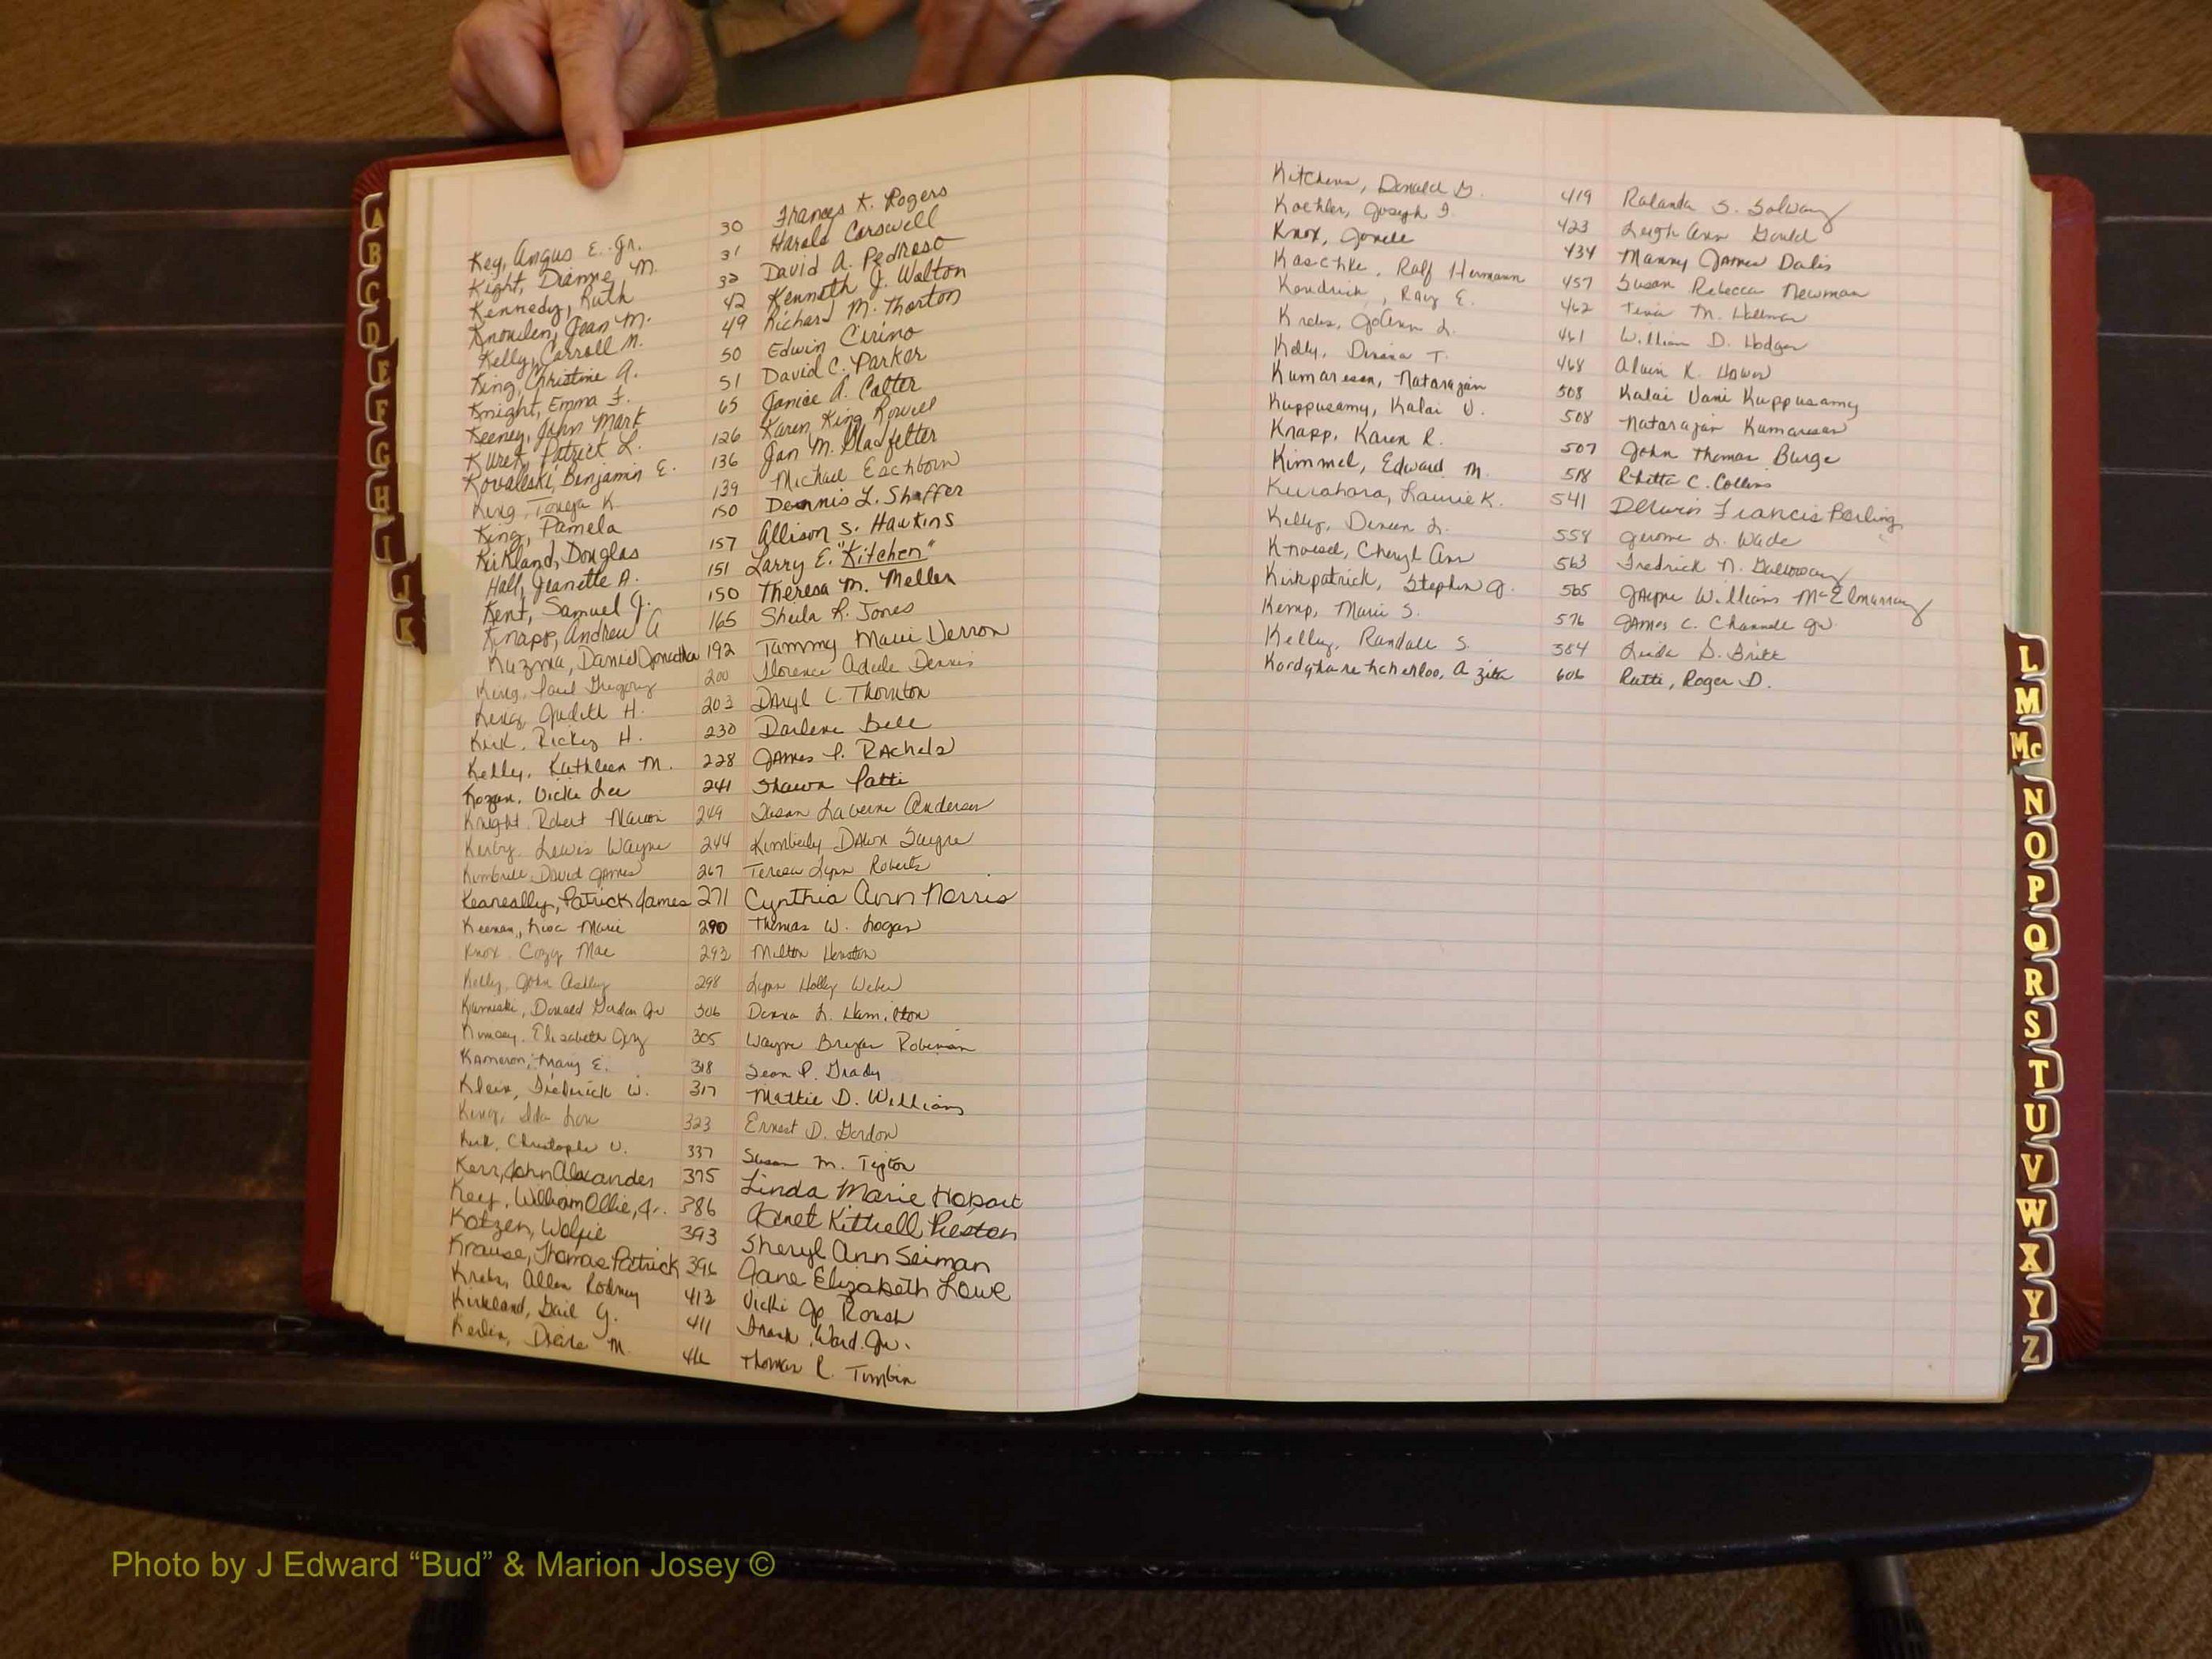 Key, Angus E. Jr. 30 Frances K. Rogers
Kight, Dianne M. 31 Harold Carswell
Kennedy, Ruth 32 David A. Pedroso
Knowlen, Jean M. 42 Kenneth J. Walton
Kelly, Carroll N. 49 Richard M. Thorton
King, Christine A. 50 Edwin Cirino
Knight, Emma F. 51 David C. Parker
Keeney, John Mark 65 Janice A. Colter
Kurek, Patrick L. 126 Karen King Rowell
Kovaleski, Benjamin E. 136 Jan M. Gladfelter
King, Tonya K. 139 Michael Eschborn
King, Pamela 150 Dennis L. Shaffer
Kirkland, Douglas 157 Allison S. Hawkins
Hall, Jeanette A. 151 Larry E. "Kitchen"
Kent, Samuel J. 150 Theresa M. Meller
Knapp, Andrew A 165 Sheila R. Jones
Kuzma, Daniel Jonathan 192 Tammy Marie Derron
King, Paul Gregory 200 Florence Adele Dennis
King, Judith H. 203 Daryl L Thornton
Kirk, Ricky H. 230 Darlene Bell
Kelly, Kathleen M. 228 James P. Rachels
Kozan, Vickie Lee 241 Shawn Patti
Knight Robert Marion 249 Susan Laverne Anderson
Kerby Lewis Wayne 244 Kimberly Dawn Sayre
Kimbrell David James 267 Teresa Lynn Roberts
Keaneally, Patrick James 271 Cynthia Ann Norris
Keenan, Lisa Marie 290 Thomas W. Logan
Knox Cozy Mae 293 Milton Houston
Kelly, John Ashley 298 Lynn Holly Weber
Kaminski, Donald Gordon Jr 306 Donna L. Hamilton
Kimsey, Elizabeth Joy 305 Wayne Bryan Robinson
Kameron, Mary E. 318 Sean P. Grady
Klein, Frederick W. 317 Mattie D. Williams
King, Ida Lou 323 Ernest D. Gordon
Kirk, Christopher V. 337 Susan M. Tipton
Kerr, John Alexander 375 Linda Marie Hobart
Key, William Ollie, Jr. 386 Janet Kittrell Preston
Kotzen, Wolfie 393 Sheryl Ann Seiman
Krause, Thomas Patrick 396 Jane Elizabeth Lowe
Krebs, Allen Rodney 413 Vicki Jo Roush
Kirkland, Gail Y. 411 Frank Ward Jr.
Kerlin, Diane M. Thomas R. Timbin
Kitchens, Donald G. 419 Rolanda S. Solway
Koehler, Joseph F. 423 Leigh Ann Gould
Knox, Jonell 434 Manny James Dalis
Kaschke, Ralf Hermann 457 Susan Rebecca Newman
Kendrick, Ray E. 462 Tina M. Hallman
Krebs, JoAnn L. 461 William D. Hodges
Kelly, Donna T. 468 Alvin K. Howes
Kumaresan, Natarajan 508 Kalai Vani Kuppusamy
Kuppusamy, Kalai V. 508 Natarajan Kumaresan
Knapp, Karen R. 507 John Thomas Burge
Kimmel, Edward M. 518 Rhetta C. Collins
Kurahara, Laurie K. 541 Delwin Francis Borling
Kelly, Doreen L. 558 Jerome L. Wade
Knoesel, Cheryl Ann 563 Fredrick N. Galloway
Kirkpatrick, Stephen J. 565 Jayne Williams McElmurray
Kemp, Marie S. 576 James C. Channell Jr
Kelly, Randall S. 584 Linda D. Britt
Kordghare hcherloo, Azita 606 Rutti, Roger D.
A
B
C
D
E
F
G
H
I
J
K
L
M
Mc
N
O
P
Q
R
S
T
U
V
W
X
Y
Z
Photo by J Edward “Bud” & Marion Josey ©